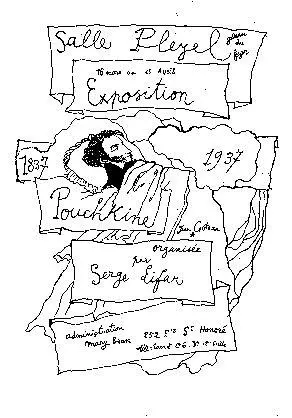 Salle Pleyel
du
16 mars au 15 Avril
Exposition
1837
1937
Pouchkine
Jean Cocteau
organisée
par
Serge Lifar
administration
252 St Honoré